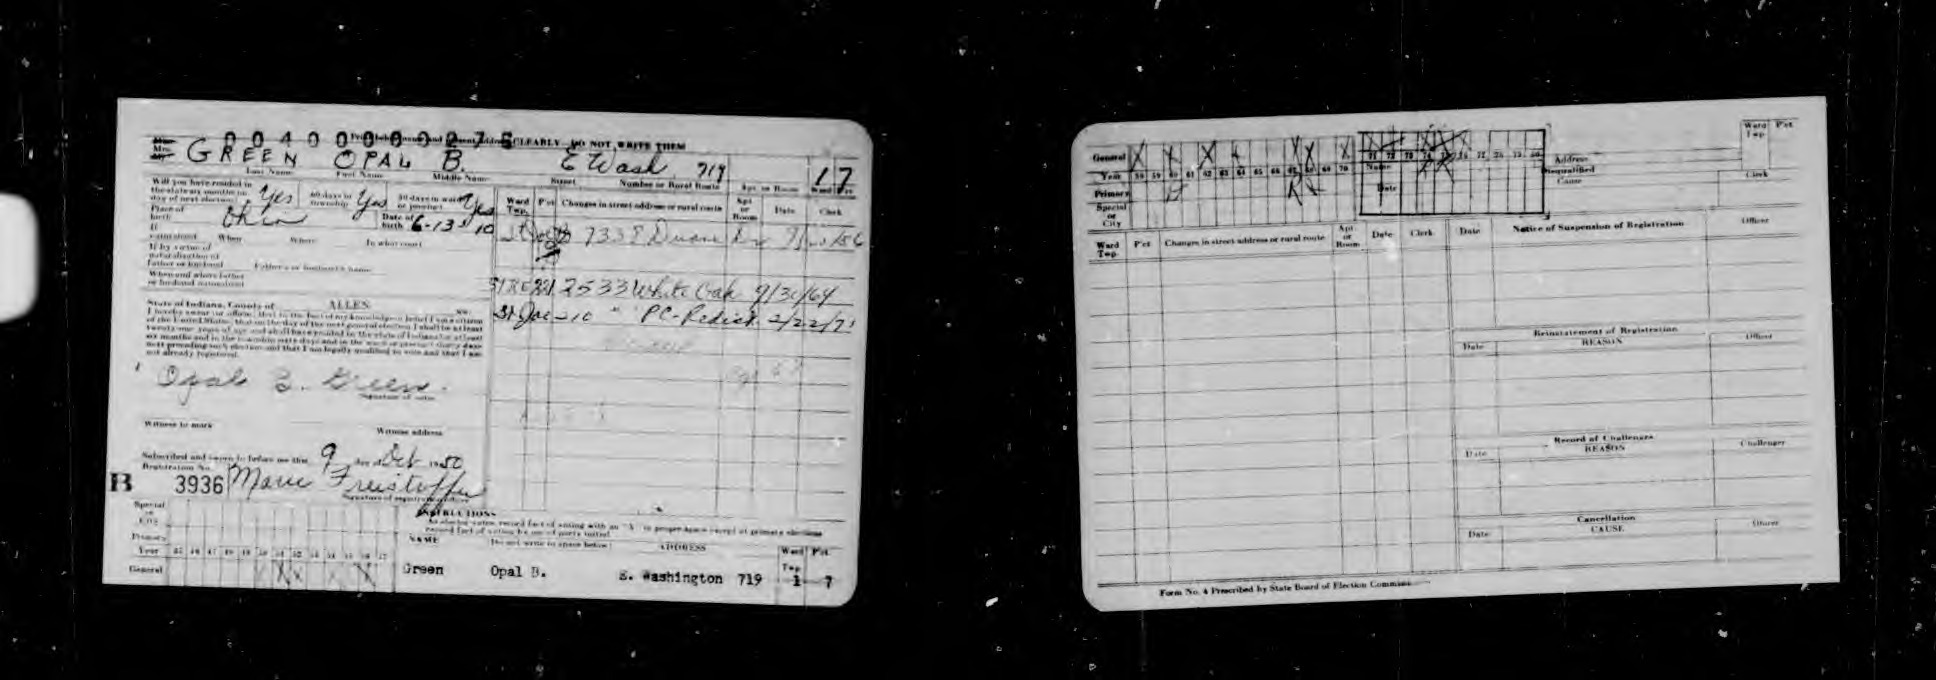 00400000275
CLEARLY DO NOT WRITE THEM
GREEN OPAL B. E Wash 719 1 7
Last Name First Name Middle Name Street Number or Rural Route Apt. or Room Ward Pct
Will you have resided in the state six months on day of next election Yes 60 days in township Yes 30 days in ward or precinct Yes
Place of birth Ohio Date of birth 6-13-10
If naturalized When Where In what court
If by virtue of naturalization of father or husband Father's or husband's name
When and where father or husband naturalized
Ward Twp. P'ct Changes in street address or rural route Apt. or Room Date Clerk
2533 White Oak 9/30/64
St Joe-10 " PC-Redist. 2/22/71
State of Indiana, County of ALLEN ss:
I hereby swear (or affirm) that to the best of my knowledge and belief I am a citizen
of the United States; that on the day of the next general election I shall be at least
twenty-one years of age and shall have resided in the state of Indiana for at least
six months and in the township sixty days and in the ward or precinct thirty days
next preceding such election and that I am legally qualified to vote and that I am
not already registered.
Opal B. Green
Signature of voter
Witness to mark Witness address
Subscribed and sworn to before me this 9 day of Oct 1950
Registration No.
B 3936 Marie
Signature of registration officer
INSTRUCTIONS
As elector votes, record fact of voting with an "X" in proper space except at primary elections
record fact of voting by use of party initial
Special or City
Primary
Year 45 46 47 48 49 50 51 52 53 54 55 56 57
General X X X
NAME Do not write in space below ADDRESS Ward Twp P'ct
Green Opal B. E. Washington 719 1 7
General X X X X X X X
Year 58 59 60 61 62 63 64 65 66 67 68 69 70 71 72 73 74 75 76 77 78 79 80
Primary
Special or City
Name
Date
Address
Disqualified
Cause
Ward Twp. P'ct
Clerk
Ward Twp. P'ct Changes in street address or rural route Apt. or Room Date Clerk
Date Notice of Suspension of Registration Officer
Reinstatement of Registration
Date REASON Officer
Record of Challenges
Date REASON Challenger
Cancellation
Date CAUSE Officer
Form No. 4 Prescribed by State Board of Election Commiss